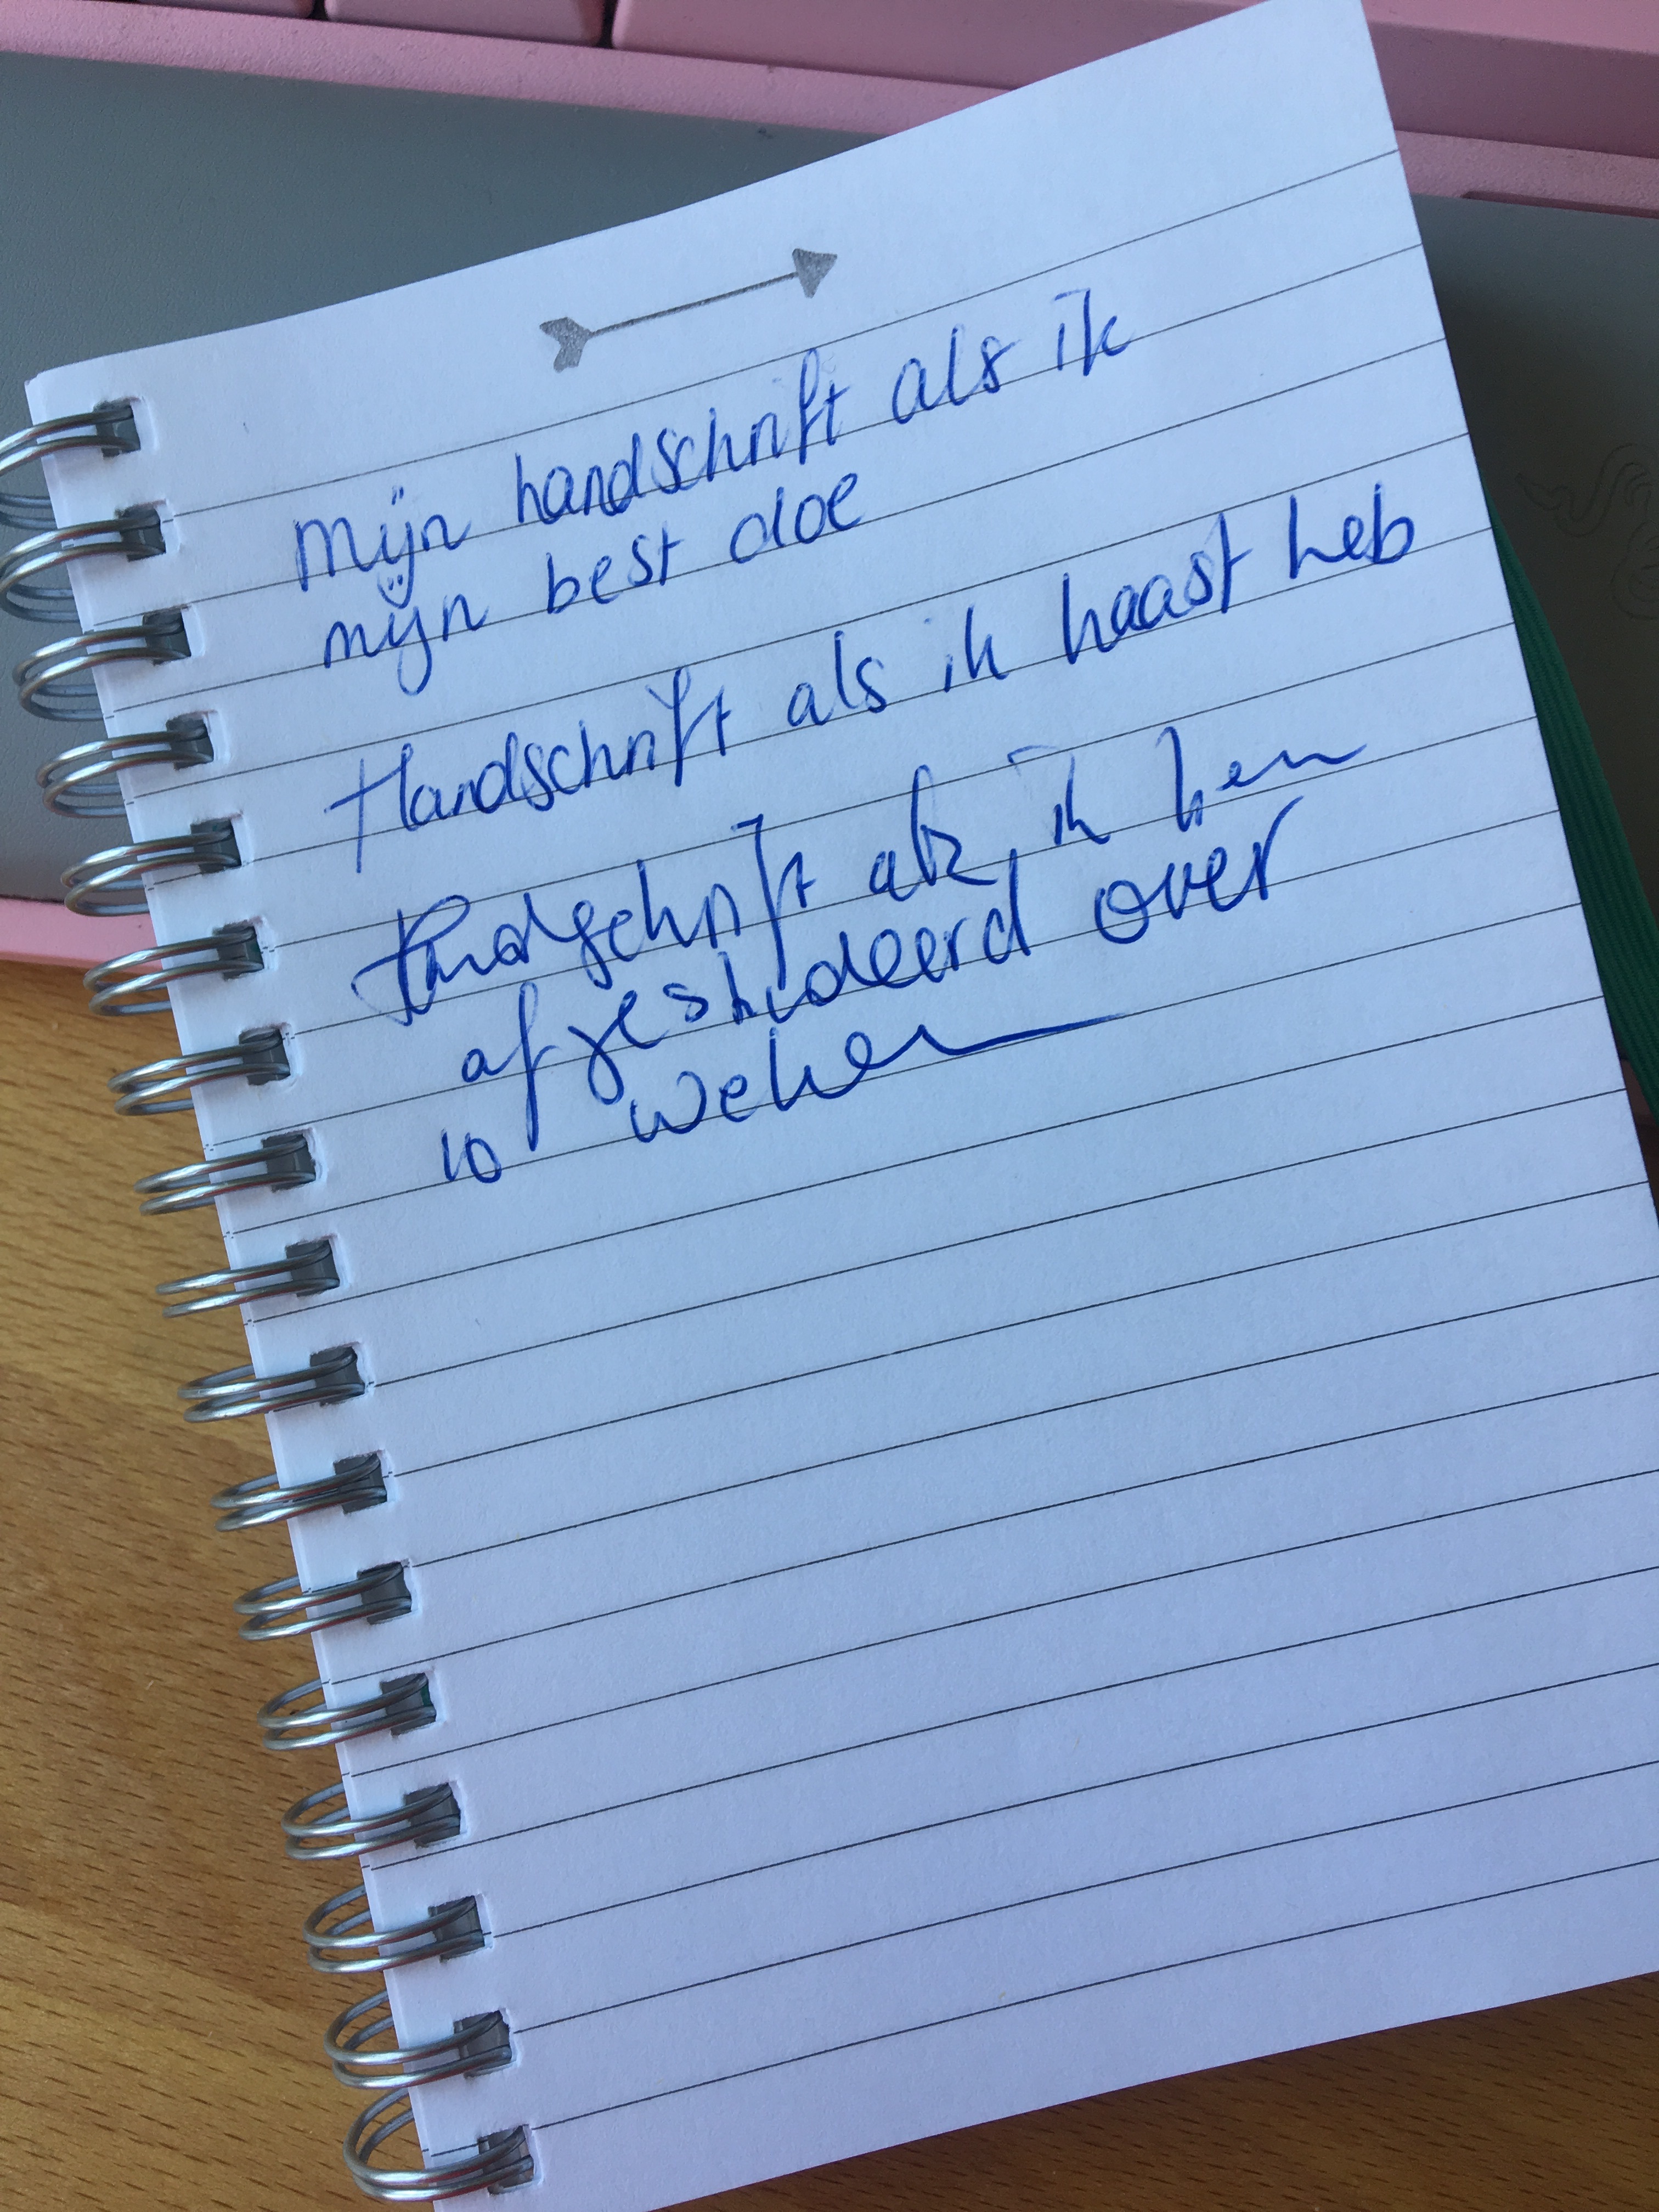 mijn handschrift als ik
mijn best doe
Handschrift als ik haast heb
Handschrift als ik ben
afgestudeerd over
10 weken